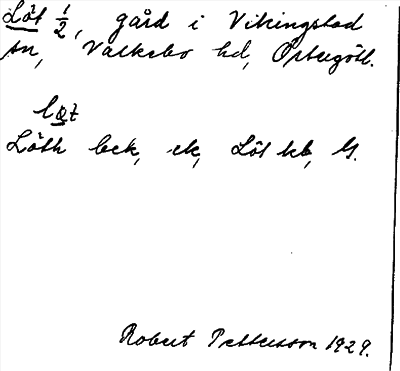 Löt 1/2, gård i Vikingstad
sn, Valkebo hd, Östergötl.
lø̱t
Löth bek, ek, Löt kb, G.
Robert Pettersson 1929.